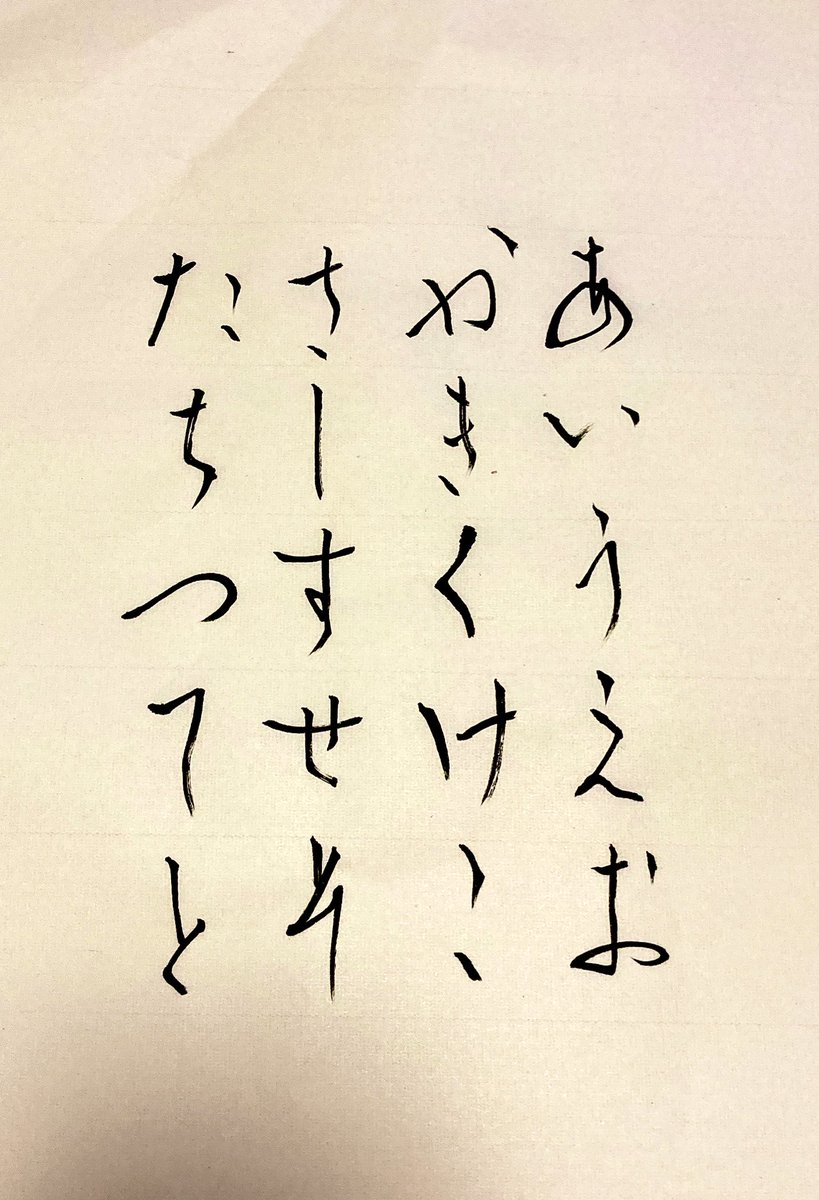 あいうえお
かきくけこ
さしすせそ
たちつてと